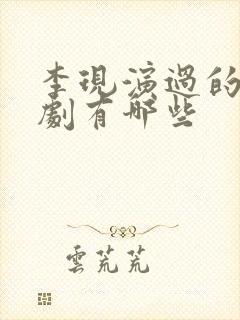 李現演過的
劇有哪些
雲芃芃